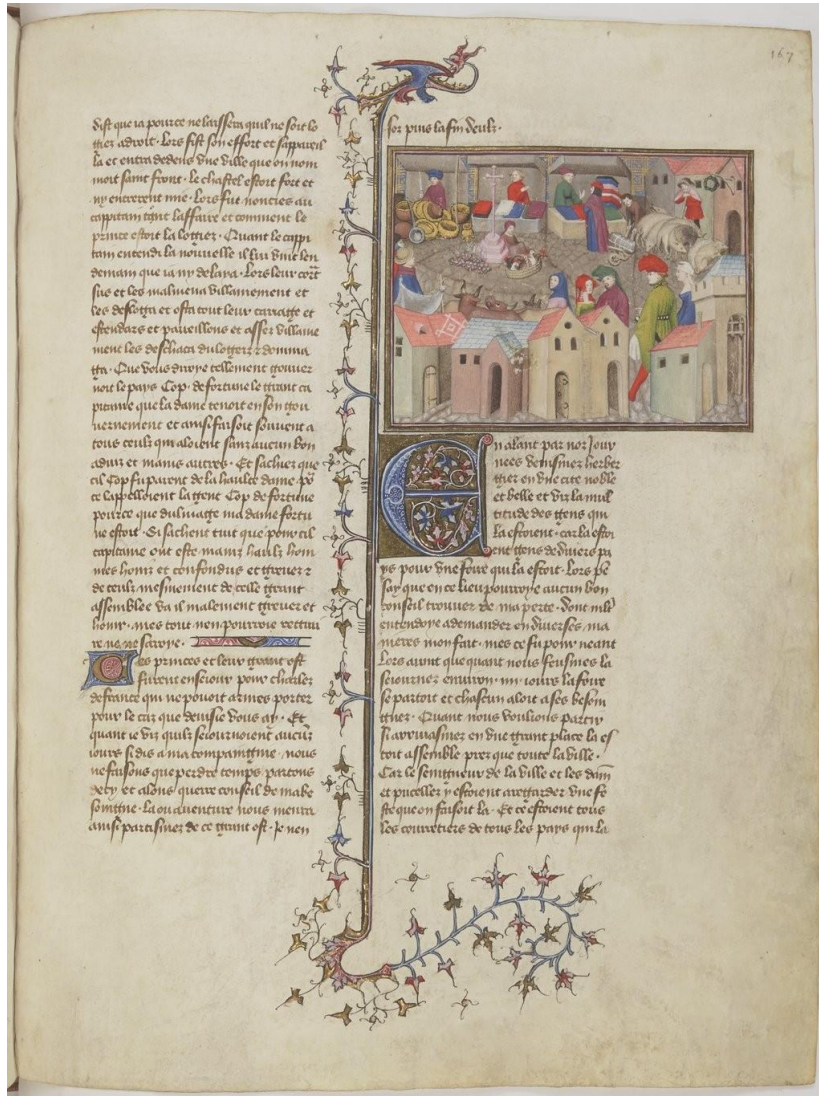 167
dist que ia pource ne laissera quil ne soit lo
gier adroit. Lors fist son effort et sappareil
la et entra dedens une ville que on nom
moit saint front. Le chastel estoit fort et
ny entrerent mie. Lors fut noncies au
cappitain laffaire et comment le
prince estoit la logiez. Quant le cappi
tam entendi la nouvelle il lui vint len
demain que ia ny delaya. Lors leur
sus et les malmena villainement et
les desloga et osta tout leur carriage et
estendars et paveillons et assez villaine
ment les deschaca du logeiz
Que vous diroye tellement gouver
noit le pays Cop de fortune le grant ca
pitaine que la dame tenoit en son gou
vernement et ainsi faisoit souvent a
tous ceulx qui aloient sanz aucun bon
adviz et mains autres. Et sachiez que
cil Cop fu parent de la haulte dame. po
ce lappelloient la gent Cop de fortune
pource que du lignage ma dame fortu
ne estoit. Si sachent tuit que pour cil
capitaine ont este mainz haulz hom
mes honiz et confondus et grevez
de ceulz mesmement de celle grant
assemblee va il malement grever et
honir. mes tout nen pourroie
re ne ne saroye.
Ces princes et leur grant ost
furent en seiour pour charles
de france qui ne povoit armes porter
pour le cas que devise vous ay. Et
quant ie viz quilz seiournoient aucuns
iours si dis a ma compaingnie. nous
ne faisons que perdre temps. partons
decy et alons querre conseil de nostre
besoingne. la ou aventure nous menra
ainsi partismez de ce grant ost. Je nen
sor puis la fin deulz.
En alant par noz jour
nees venismez herber
gier en une cite noble
et belle et viz la mul
titude des gens qui
la estoient. car la estoi
ent gens de divers pa
ys pour une foire qui la estoit. Lors pe
say que en ce lieu pourroye aucun bon
conseil trouver de ma perte. dont
entendoie a demander en diverses ma
nieres mon fait. mes ce fu pour neant
Lors avint que quant nous feusmes la
seiourner environ .iiii. iours la foire
se partoit et chascun aloit a ses besoin
gnes. Quant nous voulions partir
si arrivasmez en une grant place la es
toit assemble prez que toute la ville.
Car le seigneur de la ville et les dam
et pucellez y estoient a regarder une fe
ste que on faisoit la. Et ce estoient tous
les courretiers de tous les pays qui la